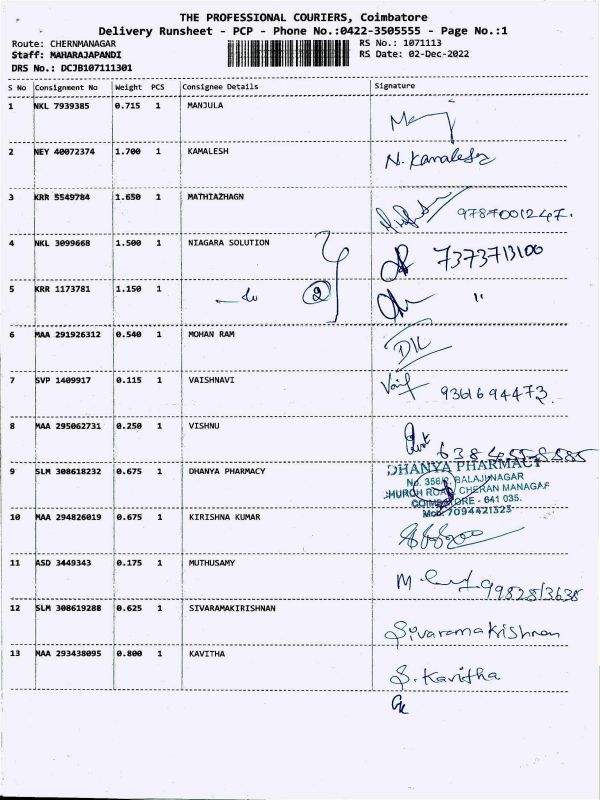 THE PROFESSIONAL COURIERS, Coimbatore
Delivery Runsheet - PCP - Phone No.:0422-3505555 - Page No.:1
Route: CHERNMANAGAR
RS No.: 1071113
Staff: MAHARAJAPANDI
RS Date: 02-Dec-2022
DRS No.: DCJB107111301
S No Consignment No Weight PCS Consignee Details Signature
1 NKL 7939385 0.715 1 MANJULA
2 NEY 40072374 1.700 1 KAMALESH N. Kamalesh
3 KRR 5549784 1.650 1 MATHIAZHAGN 9787001247.
4 NKL 3099668 1.500 1 NIAGARA SOLUTION 7373713100
5 KRR 1173781 1.150 1 2 "
6 MAA 291926312 0.540 1 MOHAN RAM
7 SVP 1409917 0.115 1 VAISHNAVI 9361694473
8 MAA 295062731 0.250 1 VISHNU
9 SLM 308618232 0.675 1 DHANYA PHARMACY
DHANYA PHARMACY
BALAJI NAGAR
CHURCH ROAD, CHERAN MANAGAR
COIMBATORE - 641 035.
Mob: 7094421323
10 MAA 294826019 0.675 1 KIRISHNA KUMAR
11 ASD 3449343 0.175 1 MUTHUSAMY
12 SLM 308619288 0.625 1 SIVARAMAKIRISHNAN Sivaramakrishnan
13 MAA 293438095 0.800 1 KAVITHA S. Kavitha